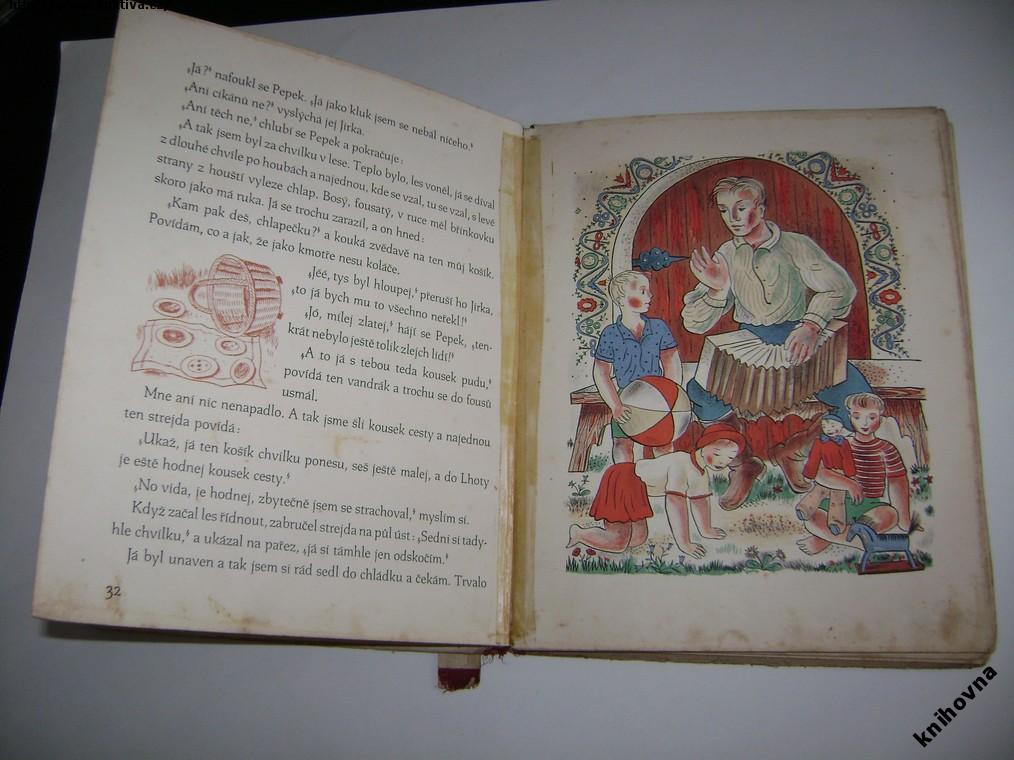 ‚Já?‘ nafoukl se Pepek. ‚Já jako kluk jsem se nebál ničeho.‘
‚Ani cikánů ne?‘ vyslýchá jej Jirka.
‚Ani těch ne,‘ chlubí se Pepek a pokračuje:
‚A tak jsem byl za chvilku v lese. Teplo bylo, les voněl, já se díval
z dlouhé chvíle po houbách a najednou, kde se vzal, tu se vzal, s levé
strany z houští vyleze chlap. Bosý, fousatý, v ruce měl břinkovku
skoro jako má ruka. Já se trochu zarazil, a on hned:
‚Kam pak deš, chlapečku?‘ a kouká zvědavě na ten můj košík.
Povídám, co a jak, že jako kmotře nesu koláče.
‚Jéé, tys byl hloupej,‘ přeruší ho Jirka,
‚to já bych mu to všechno neřekl!‘
‚Jó, milej zlatej,‘ hájí se Pepek, ‚ten-
krát nebylo ještě tolik zlejch lidí!‘
‚A to já s tebou teda kousek pudu,‘
povídá ten vandrák a trochu se do fousů
usmál.
Mne ani nic nenapadlo. A tak jsme šli kousek cesty a najednou
ten strejda povídá:
‚Ukaž, já ten košík chvilku ponesu, seš ještě malej, a do Lhoty
je eště hodnej kousek cesty.‘
‚No vida, je hodnej, zbytečně jsem se strachoval,‘ myslím si.
Když začal les řídnout, zabručel strejda na půl úst: ‚Sedni si tady-
hle chvilku,‘ a ukázal na pařez, ‚já si támhle jen odskočím.‘
Já byl unaven a tak jsem si rád sedl do chládku a čekám. Trvalo
32
knihovna